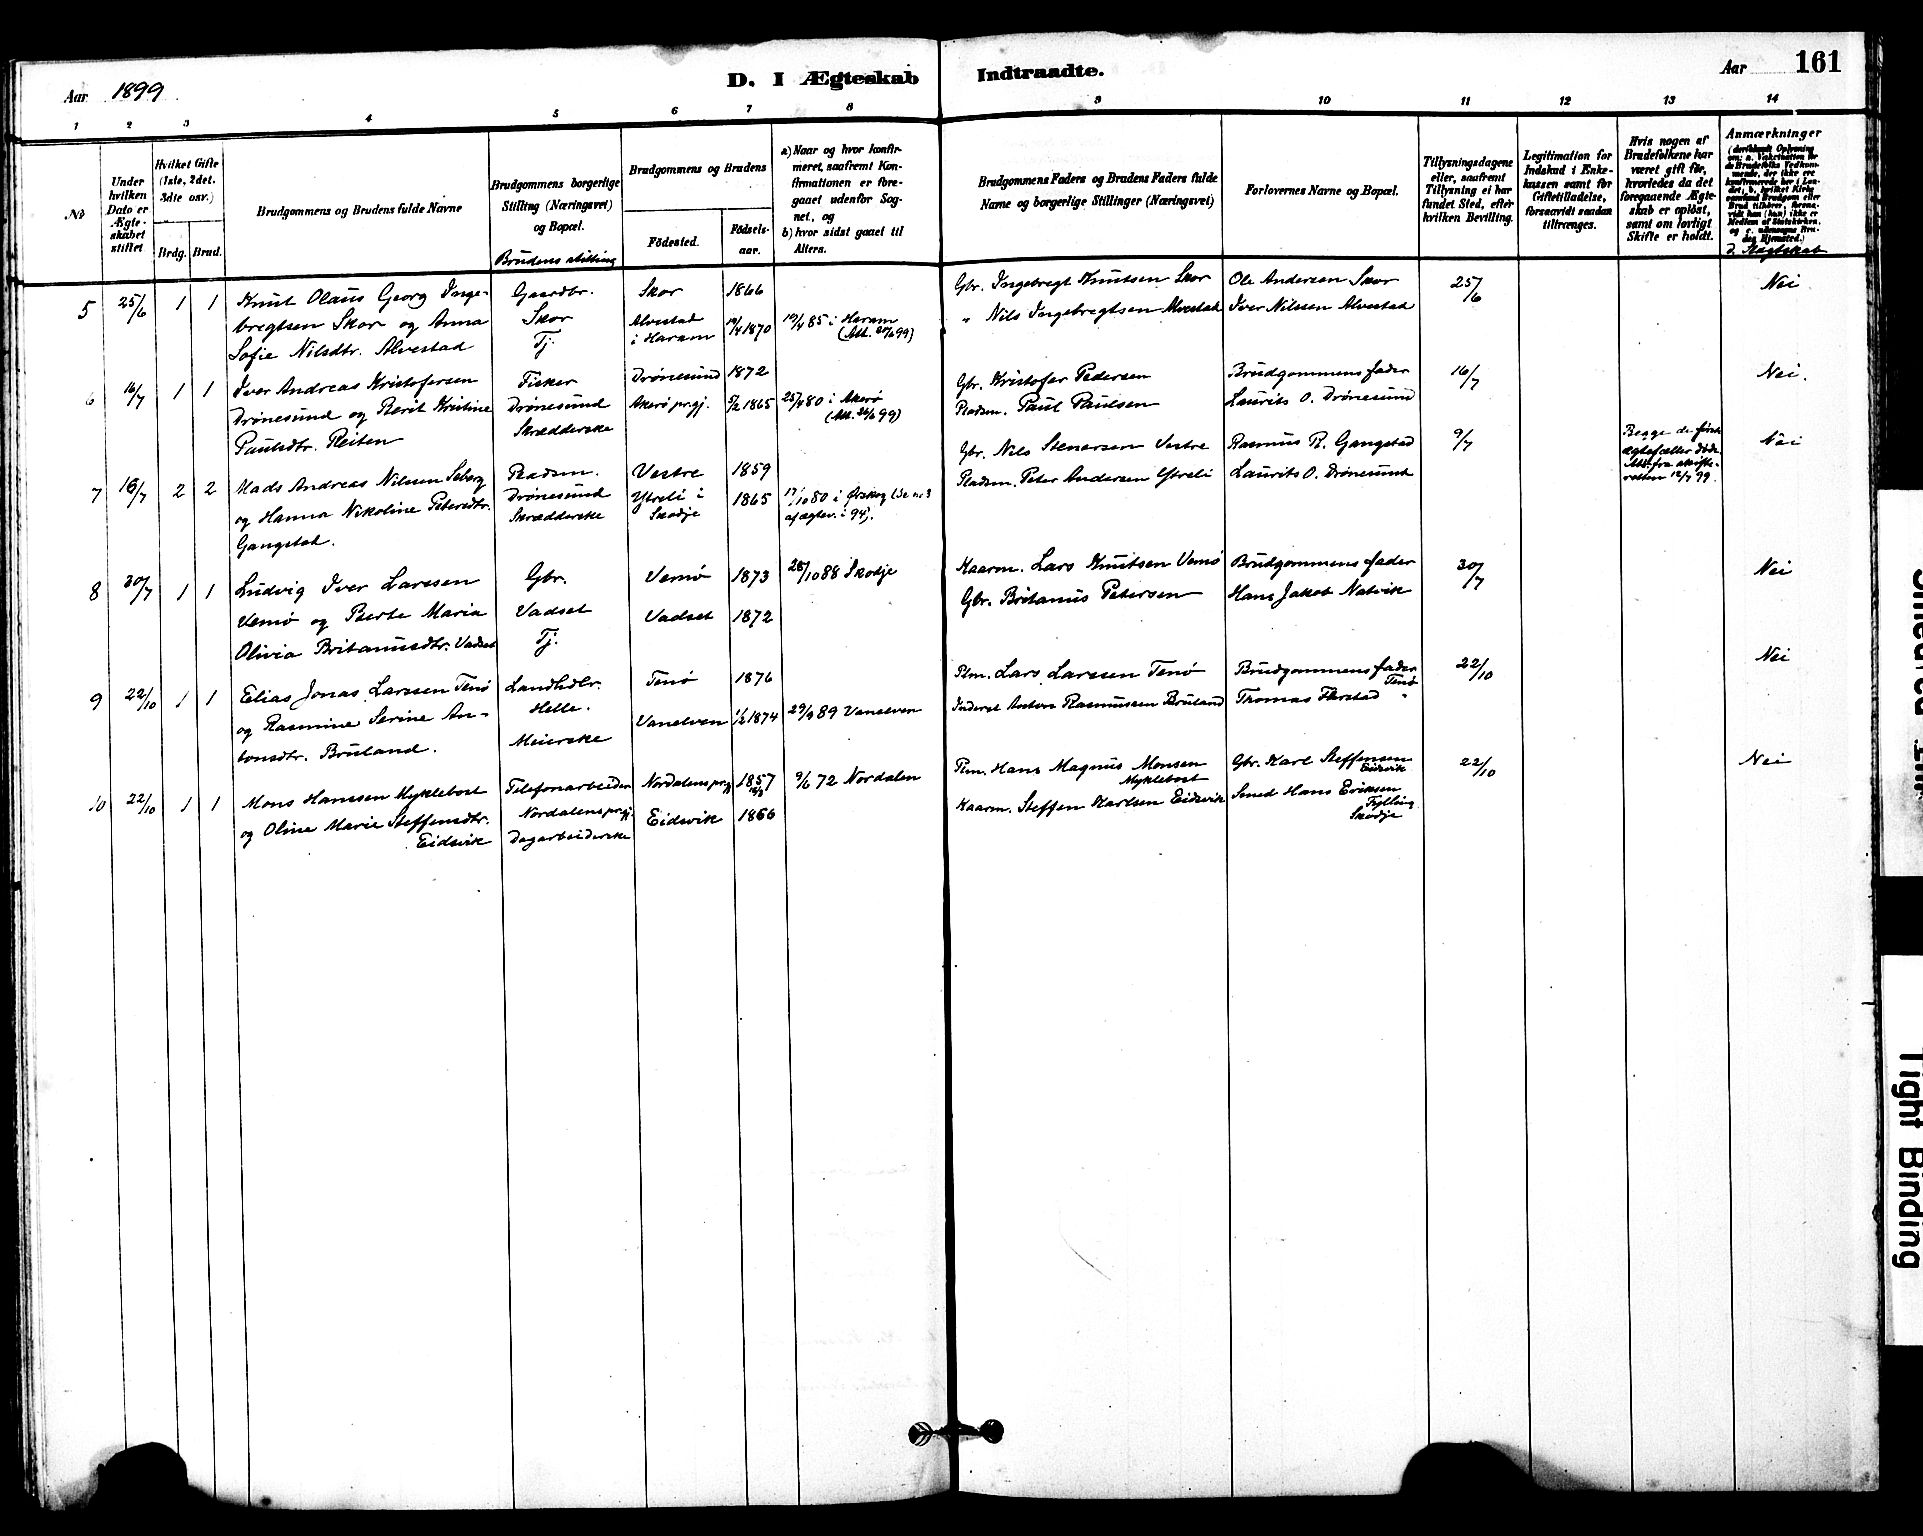 Aar 1899
D. I Ægteskab Indtraadte.
Aar 161
1 2 3 4 5 6 7 8 9 10 11 12 13 14
No
Under hvilken Dato er Ægteskabet stiftet
Hvilket Gifte (1ste, 2det, 3dte osv.)
Brdg. Brud.
Brudgommens og Brudens fulde Navne
Brudgommens borgerlige Stilling (Næringsvei) og Bopæl.
Brudens stilling
Brudgommens og Brudens
Födested.
Födselsaar.
a) Naar og hvor konfirmeret, saafremt Konfirmationen er foregaaet udenfor Sognet, og
b) hvor sidst gaaet til Alters.
Brudgommens Faders og Brudens Faders fulde Navne og borgerlige Stillinger (Næringsvei)
Forlovernes Navne og Bopæl.
Tillysningsdagene eller, saafremt Tillysning ei har fundet Sted, efter hvilken Bevilling.
Legitimation for Indskud i Enkekassen samt for Giftetilladelse, forsaavidt saadan tiltrænges.
Hvis nogen af Brudefolkene har været gift før, hvorledes da det foregaaende Ægteskab er opløst, samt om lovligt Skifte er holdt.
Anmærkninger
d. Slægtskab
5 25/6 1 1 Knut Olaus Georg Inge- Gaardbr. Skor 1866 Gbr. Ingebregt Knutsen Skor Ole Andersen Skor 25/6 Nei
bregtsen Skor og Anna Skor Alvestad 19/4 1870 19/4 85 i Haram „ Nils Ingebregtsen Alvestad Iver Nilssen Alvestad
Sofie Nilsdtr. Alvestad Tj. i Haram
6 16/7 1 1 Iver Andreas Kristofersen Fisker Drönesund 1872 Gbr. Kristofer Pedersen Brudgommens fader 16/7 Nei.
Drönesund og Berit Kristine Drönesund Akerø prgj. 1865 25/4 80 i Akerø Pladsm. Paul Paulsen Laurits O. Drönesund
Paulsdtr. Reiten Skrædderske
7 16/7 2 2 Mads Andreas Nilssen Seberg Pladsm. Vestre 1859 Gbr. Nils Stenersen Vestre Rasmus R. Gangstad 9/7 Begge de første ægtefæller døde. Att. fra skifteretten 12/7 99. Nei
og Hanna Nikoline Petersdtr. Drönesund Ytreli i 1865 17/10 80 i Ørskog (Se nr 3 Pladsm. Peter Andersen Ytreli Laurits O. Drönesund
Gangstad. Skrædderske Skodje af ægtev. i 94).
8 30/7 1 1 Ludvig Iver Larssen Gbr. Vemø 1873 28/10 88 Skodje Kaarm. Lars Knutsen Vemø Brudgommens fader 30/7 Nei
Vemø og Berte Maria Vadset Vadset 1872 Gbr. Britanus Petersen Hans Jakob Natvik
Olivia Britanusdtr. Vadset Tj.
9 22/10 1 1 Elias Jonas Larssen Tenø Landhdlr. Tenø 1876 Plm. Lars Larssen Tenø Brudgommens fader Tenø 22/10 Nei
og Rasmine Serine An- Helle. Vanelven 1/2 1874 29/9 89 Vanelven Inderst Anton Rasmussen Bruland Thomas Flerstad „
tonsdtr. Bruland. Meierske
10 22/10 1 1 Mons Hanssen Myklebost Telefonarbeider Nordalens prgj. 1857 9/6 72 Nordalen Plm. Hans Magnus Monsen Myklebost Gbr. Karl Steffensen Eidsvik 22/10 Nei
og Oline Marie Steffensdtr. Nordalens prgj. Eidsvik 1866 Kaarm. Steffen Karlsen Eidsvik Smed Hans Eriksen Fylling
Eidsvik Dagarbeiderske Skodje
Tight Binding